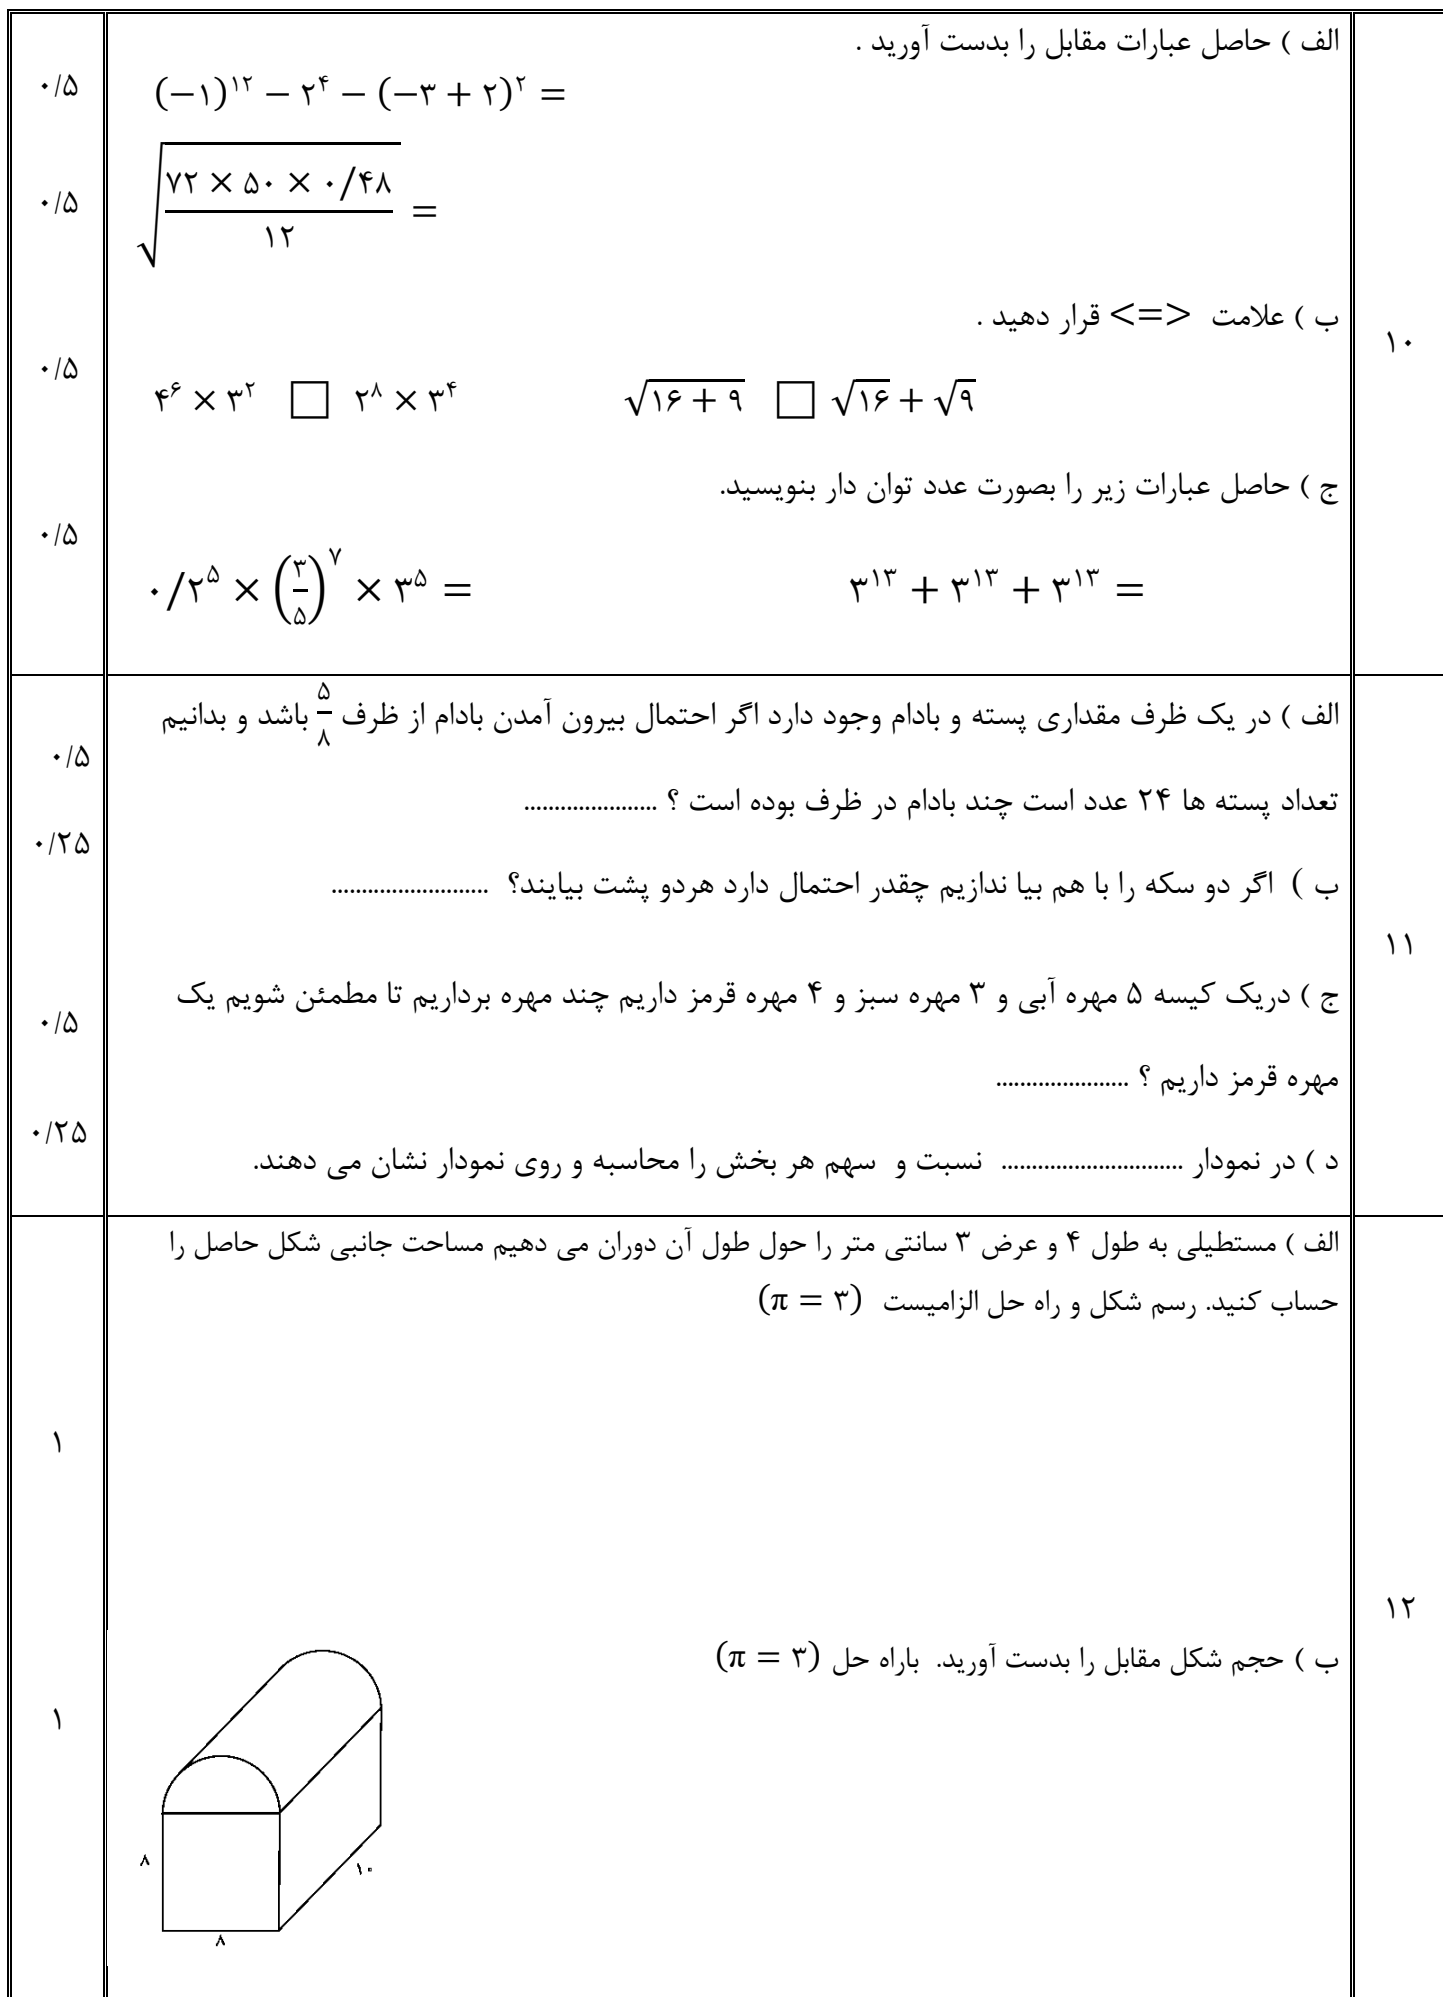 الف ) حاصل عبارات مقابل را بدست آورید .
۰/۵
(−۱)^۱۲ − ۲^۴ − (−۳ + ۲)^۲ =
۰/۵
√((۷۲ × ۵۰ × ۰/۴۸)/۱۲) =
۱۰
ب ) علامت <=> قرار دهید .
۰/۵
۴^۶ × ۳^۲ □ ۲^۸ × ۳^۴ √(۱۶ + ۹) □ √۱۶ + √۹
ج ) حاصل عبارات زیر را بصورت عدد توان دار بنویسید.
۰/۵
۰/۲^۵ × (۳/۵)^۷ × ۳^۵ = ۳^۱۳ + ۳^۱۳ + ۳^۱۳ =
الف ) در یک ظرف مقداری پسته و بادام وجود دارد اگر احتمال بیرون آمدن بادام از ظرف ۵/۸ باشد و بدانیم
۰/۵
تعداد پسته ها ۲۴ عدد است چند بادام در ظرف بوده است ؟ ......................
۰/۲۵
ب ) اگر دو سکه را با هم بیا ندازیم چقدر احتمال دارد هردو پشت بیایند؟ ..........................
۱۱
ج ) دریک کیسه ۵ مهره آبی و ۳ مهره سبز و ۴ مهره قرمز داریم چند مهره برداریم تا مطمئن شویم یک
۰/۵
مهره قرمز داریم ؟ ......................
۰/۲۵
د ) در نمودار .............................. نسبت و سهم هر بخش را محاسبه و روی نمودار نشان می دهند.
الف ) مستطیلی به طول ۴ و عرض ۳ سانتی متر را حول طول آن دوران می دهیم مساحت جانبی شکل حاصل را
حساب کنید. رسم شکل و راه حل الزامیست (π = ۳)
۱
۱۲
ب ) حجم شکل مقابل را بدست آورید. باراه حل (π = ۳)
۱
۸
۱۰
۸